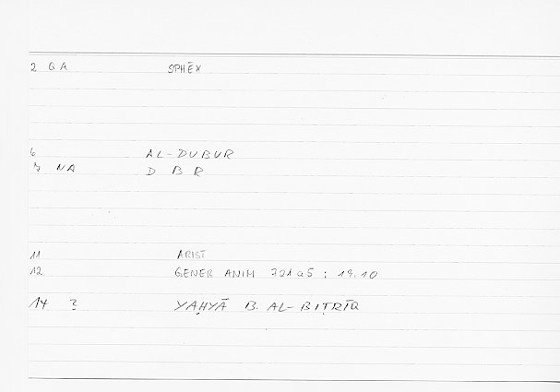 2 GA SPHĒX
6 AL-DUBUR
7 NA D B R
11 ARIST
12 GENER ANIM 721a5 : 19.10
14 ? YAḤYĀ B. AL-BIṬRĪQ